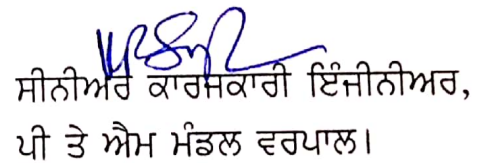 ਸੀਨੀਅਰ ਕਾਰਜਕਾਰੀ ਇੰਜੀਨੀਅਰ,
ਪੀ ਤੇ ਐਮ ਮੰਡਲ ਵਰਪਾਲ।